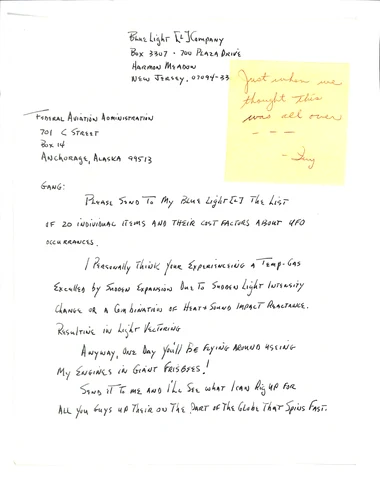 Blue Light [L] Company
Box 3307 - 700 Plaza Drive
Harmon Meadow
New Jersey, 07094-33
Just when we
thought this
was all over
- - -
- Guy
Federal Aviation Administration
701 C Street
Box 14
Anchorage, Alaska 99513
Gang:
Please Send To My Blue Light [L] The List
of 20 individual items and their cost factors about UFO
occurrances.
I Personally Think Your Experienceing a Temp-Gas
Excelled by Sudden Expansion Due to Sudden Light Intensity
Change or a Combination of Heat & Sound Impact Reactance.
Resulting in Light Vectoring
Anyway, one Day You'll be Flying Around useing
My Engines in Giant Frisbees!
Send it to me and I'll See what I can Rig up for
All you Guys up Their on The Part of the Globe That Spins Fast.